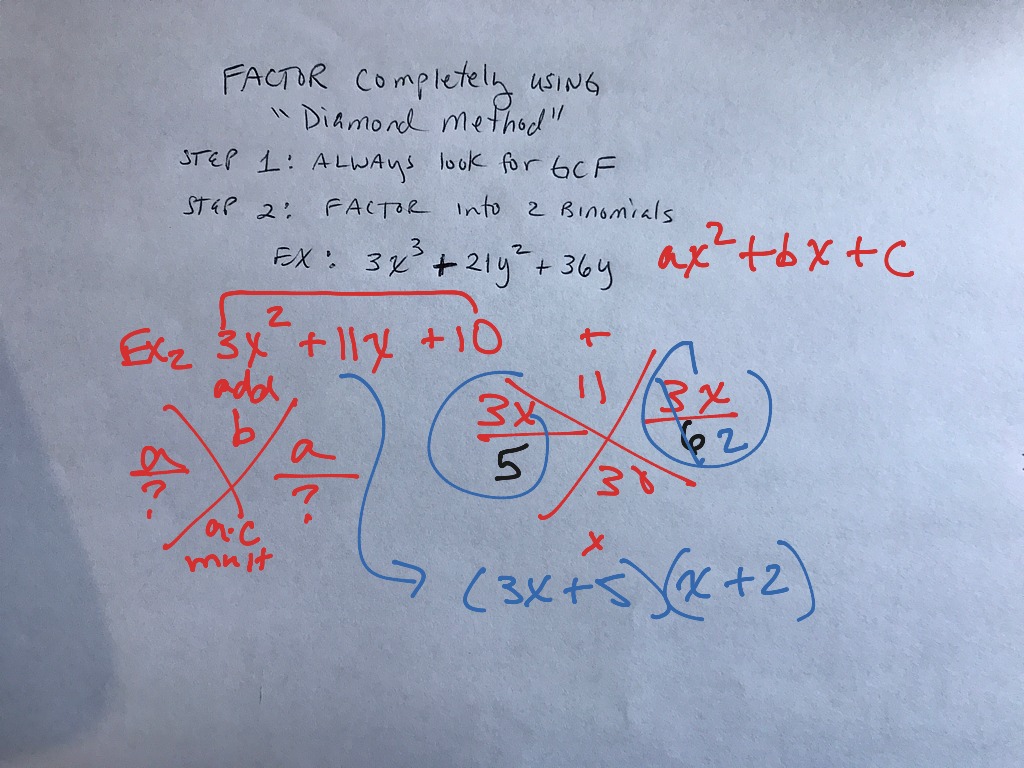 FACTOR Completely USING
"Diamond method"
STEP 1: ALWAYS look for GCF
STEP 2: FACTOR into 2 Binomials
EX: 3x³ + 21y² + 36y
ax² + bx + c
Ex₂ 3x² + 11x + 10
add
b
a
?
a
?
a·c
mult
+
11
3x
5
3x
6 2
30
x
(3x+5)(x+2)